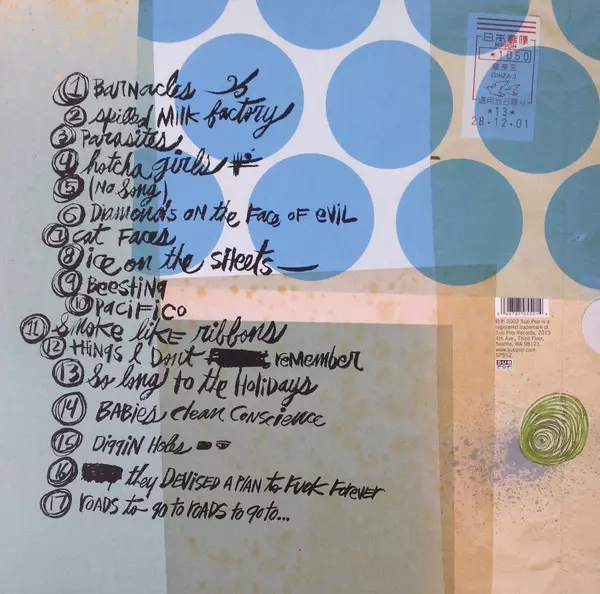 1 Barnacles
2 spilled Milk factory
3 Parasites
4 hotcha girls
5 (No Song)
6 Diamonds on the Face of evil
7 cat Faces
8 ice on the sheets
9 Beesting
10 Pacifico
11 Smoke like ribbons
12 Things I Don't remember
13 So long to the Holidays
14 Babies clean conscience
15 Diggin Holes
16 they Devised a Plan to Fuck Forever
17 roads to go to roads to go to...
日本郵便
NIPPON
*1050
銀座三
GINZA 3
*13*
28.12.01
©℗ 2002 Sub Pop is a
registered trademark of
Sub Pop Records, 2013
4th Ave., Third Floor,
Seattle, WA 98121.
www.subpop.com
SP552
SUB
POP